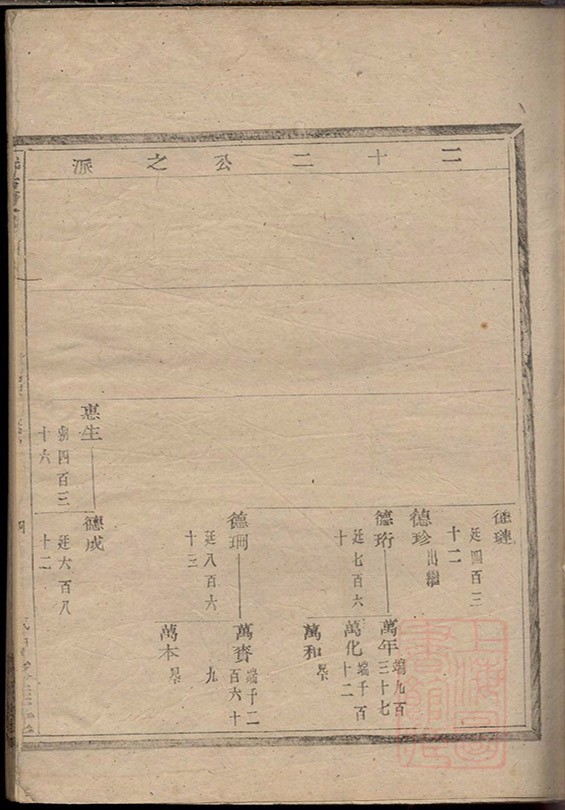 二十二公之派
德璉
廷四百三
十二
德珍
出繼
德珩
廷七百六
十
德珊
廷八百六
十三
惠生
朝四百三
十六
德成
廷六百八
十二
萬年
端九百
三十七
萬化
端千百
十二
萬和
萬賚
端千二
百六十
九
萬本